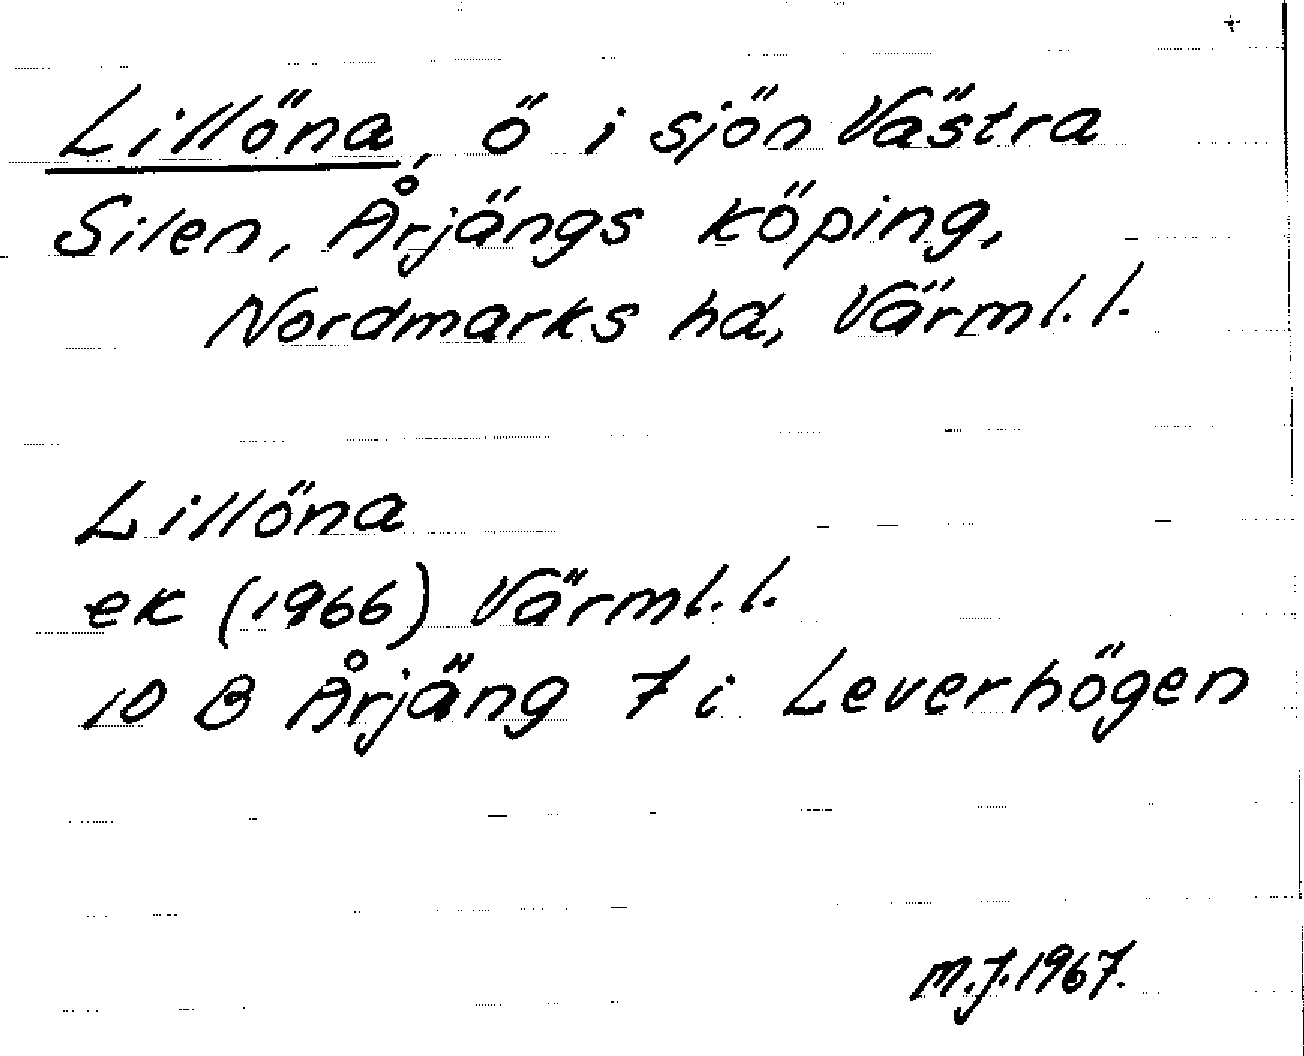 Lillöna, ö i sjön Västra
Silen, Årjängs köping,
Nordmarks hd, Värml. l.
Lillöna
ek (1966) Värml. l.
10 B Årjäng 7 i Leverhögen
M.J. 1967.